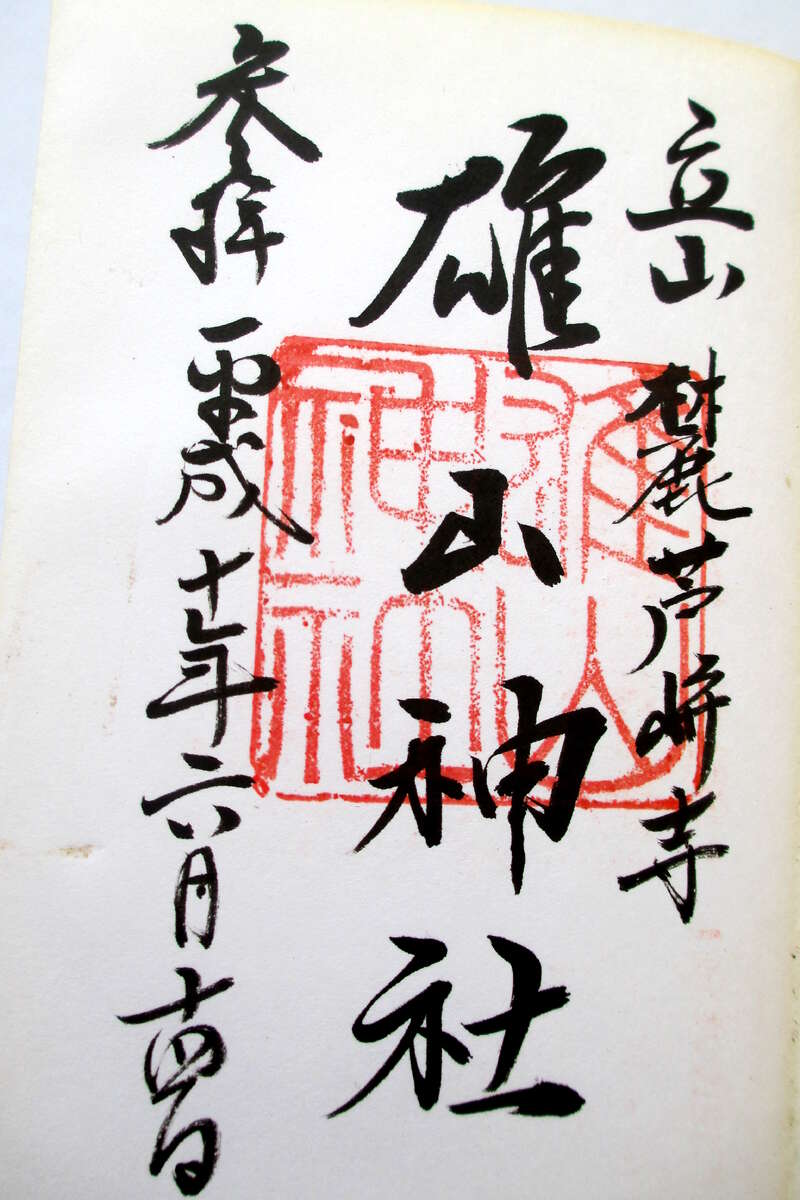 立山麓芦峅寺
雄山神社
参拝 平成十年六月十四日
雄山
神社